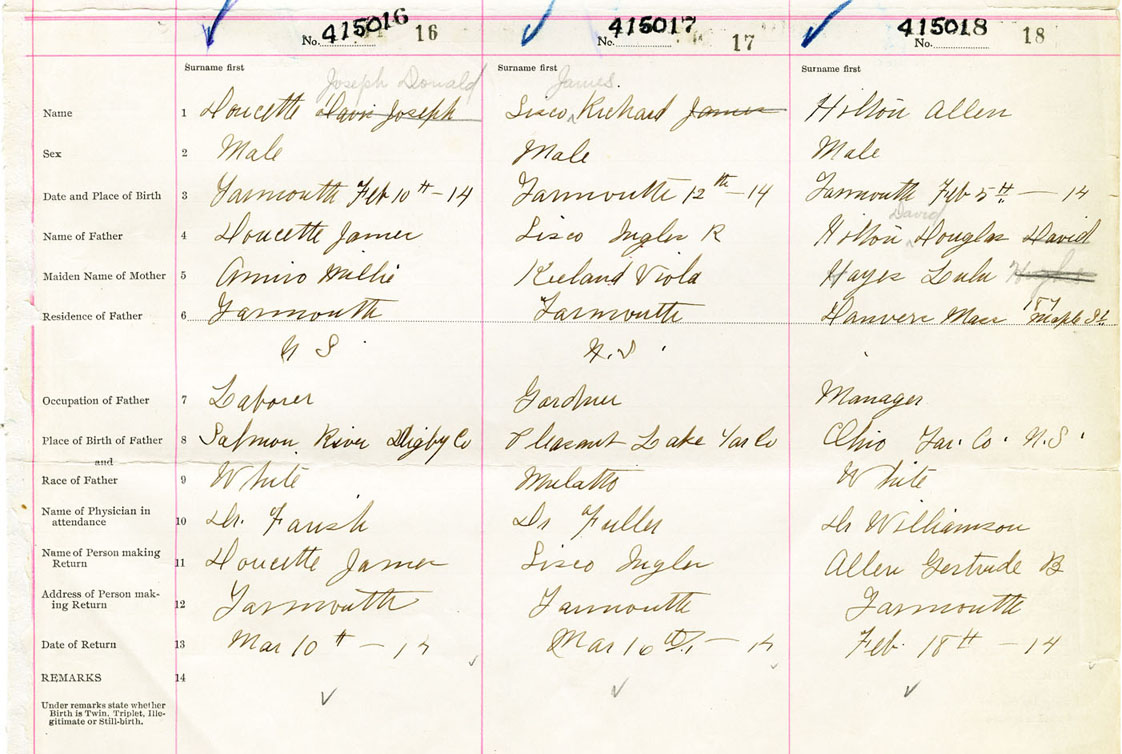 No. 415016 16 No. 415017 17 No. 415018 18
Surname first Surname first Surname first
Joseph Donald James
Name 1 Doucette Davis Joseph Lisco Richard James Hilton Allen
Sex 2 Male Male Male
Date and Place of Birth 3 Yarmouth Feb 10th - 14 Yarmouth 12th - 14 Yarmouth Feb 5th - 14
David
Name of Father 4 Doucette James Lisco Ingler R Hilton Douglas David
Maiden Name of Mother 5 Amiro Millie Kieland Viola Hayes Lulu
Residence of Father 6 Yarmouth Yarmouth Danvers Mass 187 Maple St.
N S. N.S.
Occupation of Father 7 Laborer Gardner Manager
Place of Birth of Father 8 Salmon River Digby Co Pleasant Lake Yar Co Ohio Yar. Co. N.S.
and
Race of Father 9 White Mulatto White
Name of Physician in attendance 10 Dr. Farish Dr Fuller Dr Williamson
Name of Person making Return 11 Doucette James Lisco Ingler Allen Gertrude B
Address of Person making Return 12 Yarmouth Yarmouth Yarmouth
Date of Return 13 Mar 10th - 14 Mar 10th - 14 Feb. 18th - 14
REMARKS 14
Under remarks state whether
Birth is Twin, Triplet, Ille-
gitimate or Still-birth.